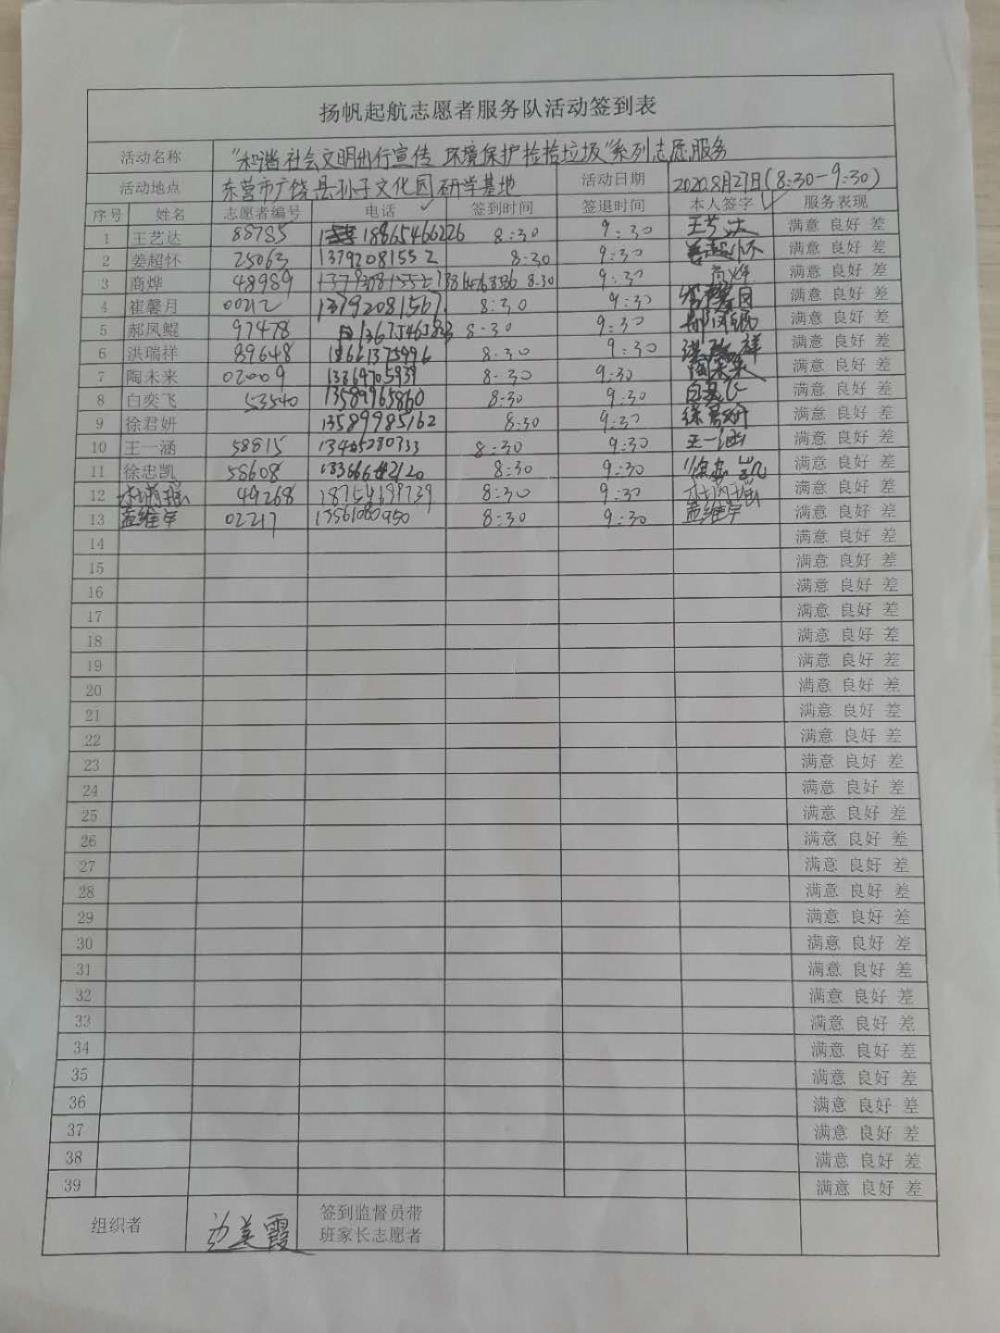 扬帆起航志愿者服务队活动签到表
活动名称 "和谐社会文明出行宣传 环境保护捡拾垃圾"系列志愿服务
活动地点 东营市广饶县孙子文化园研学基地 活动日期 2020.8月27日(8:30-9:30)
序号 姓名 志愿者编号 电话 签到时间 签退时间 本人签字 服务表现
1 王艺达 88785 18865466226 8:30 9:30 王艺达 满意 良好 差
2 姜超怀 25063 13792081552 8:30 9:30 姜超怀 满意 良好 差
3 商烨 48989 8:30 9:30 商烨 满意 良好 差
4 崔馨月 00212 13792081567 8:30 9:30 崔馨月 满意 良好 差
5 郝凤鲲 97478 8:30 9:30 郝凤鲲 满意 良好 差
6 洪瑞祥 89648 8:30 9:30 洪瑞祥 满意 良好 差
7 陶未来 02009 8:30 9:30 陶未来 满意 良好 差
8 白奕飞 53540 13589965860 8:30 9:30 白奕飞 满意 良好 差
9 徐君妍 13589985162 8:30 9:30 徐君妍 满意 良好 差
10 王一涵 58815 8:30 9:30 王一涵 满意 良好 差
11 徐忠凯 58608 8:30 9:30 徐忠凯 满意 良好 差
12 49268 8:30 9:30 满意 良好 差
13 孟维宇 02217 13561080950 8:30 9:30 孟维宇 满意 良好 差
14 满意 良好 差
15 满意 良好 差
16 满意 良好 差
17 满意 良好 差
18 满意 良好 差
19 满意 良好 差
20 满意 良好 差
21 满意 良好 差
22 满意 良好 差
23 满意 良好 差
24 满意 良好 差
25 满意 良好 差
26 满意 良好 差
27 满意 良好 差
28 满意 良好 差
29 满意 良好 差
30 满意 良好 差
31 满意 良好 差
32 满意 良好 差
33 满意 良好 差
34 满意 良好 差
35 满意 良好 差
36 满意 良好 差
37 满意 良好 差
38 满意 良好 差
39 满意 良好 差
组织者 美霞 签到监督员带
班家长志愿者